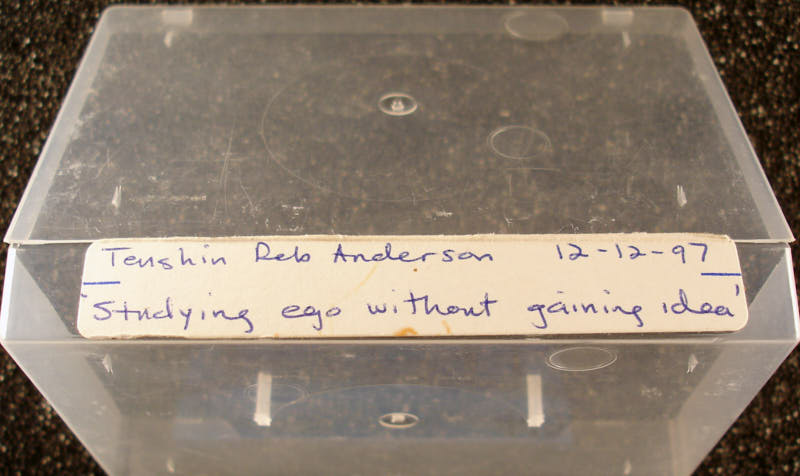 Tenshin Reb Anderson 12-12-97
'Studying ego without gaining idea'